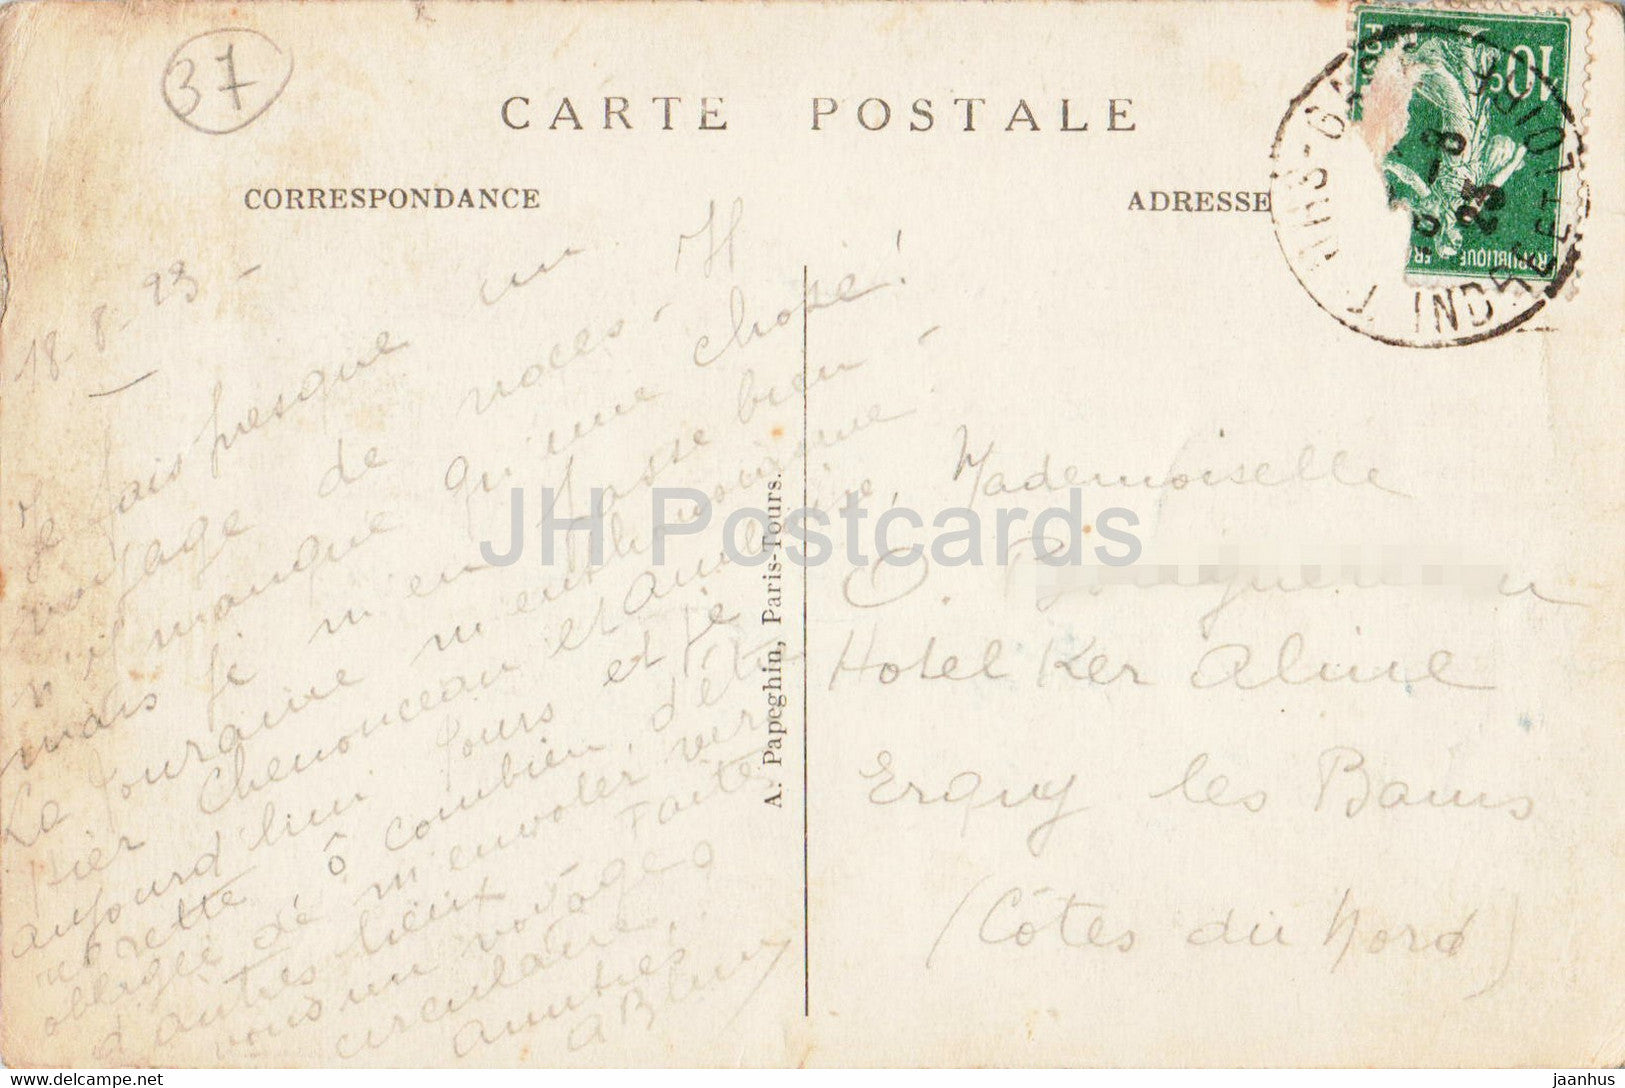 37
CARTE POSTALE
CORRESPONDANCE
ADRESSE
10c
RÉPUBLIQUE
TOURS-GARE
INDRE-ET-LOIRE
-8
23
18-8-23-
Je fais presque un
voyage de noces - 
n'il manque qu'une chose!
mais je m'en passe bien -
La Touraine m'enthousiasme -
Hier Chenonceau et Amboise,
aujourd'hui Tours et je
regrette ô combien, d'être
obligée de m'envoler vers
d'autres lieux - Faites
vous un voyage
circulaire,
amitiés
JH Postcards
A. Papeghin, Paris-Tours.
Mademoiselle
O.
Hotel Ker Aline
Erquy les Bains
(Côtes du Nord)
delcampe.net
jaanhus